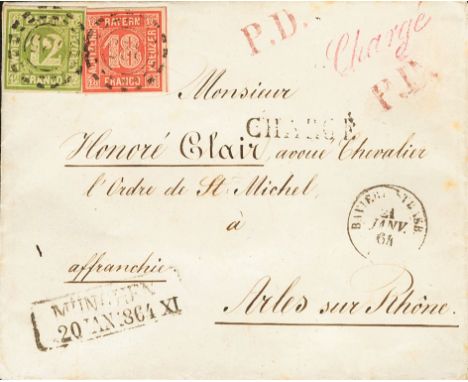 12
FRANCO
BAYERN
18
KREUZER
FRANCO
P.D.
Chargé
P.D.
Monsieur
CHARGÉ
Honoré Clair, avoué Chevalier
l'Ordre de St Michel,
à
21
JANV.
64
affranchie
MÜNCHEN
20 JAN. 1864 XI
Arles sur Rhône.